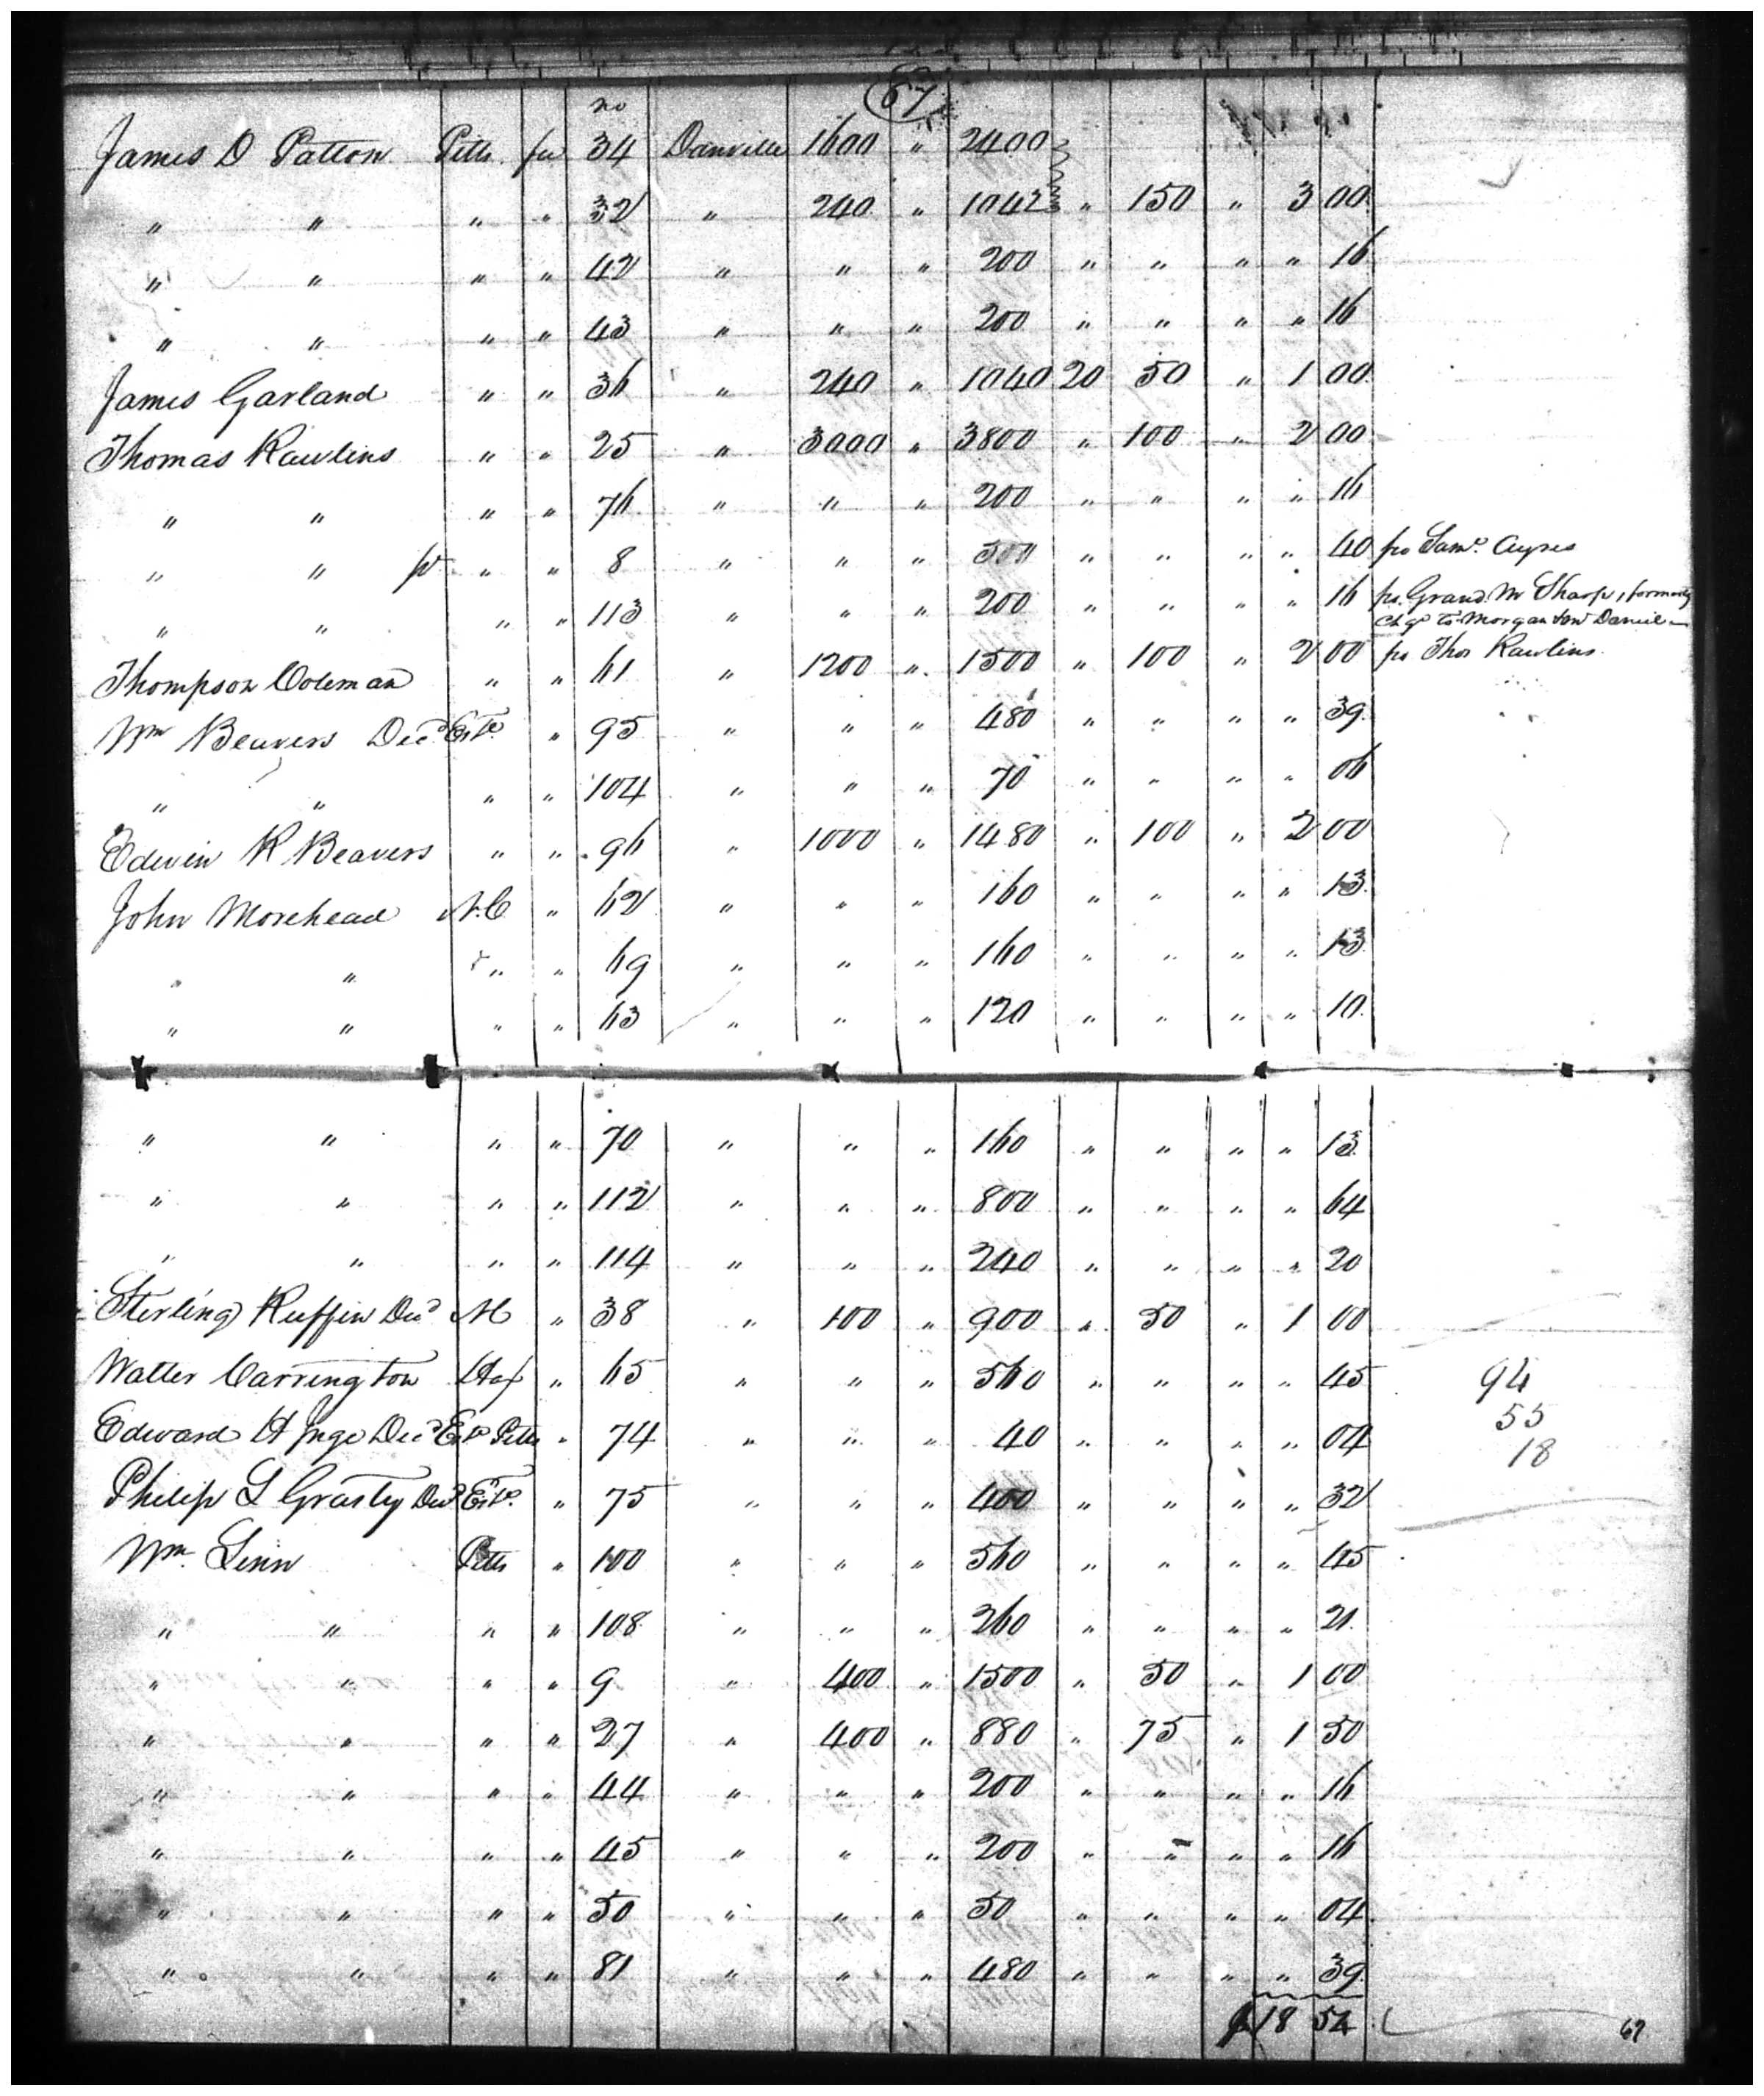 67
no
James D Patton Pitts. fee 34 Danville 1600 " 2400
" " " " 32 " 240 " 1042 " 150 " 3 00
" " " " 42 " " " 200 " " " " 16
" " " " 43 " " " 200 " " " " 16
James Garland " " 36 " 240 " 1040 20 50 " 1 00
Thomas Rawlins " " 25 " 3000 " 3800 " 100 " 2 00
" " " " 76 " " " 200 " " " " 16
" " " " 8 " " " " " " " 40 fro Saml. Ayres
" " " " 113 " " " 200 " " " " 16 fro. Grand. M Sharp, formerly
Chgd to Morgan
Thompson Coleman " " 61 " 1200 " 1500 " 100 " 2 00 fro Thos Rawlins
Wm Beavers Decd Este. " 95 " " " 480 " " " " 39
" " " " 104 " " " 70 " " " " 06
Edwin R Beavers " " 96 " 1000 " 1480 " 100 " 2 00
John Morehead N.C " 62 " " " 160 " " " " 13
" " " " 69 " " " 160 " " " " 13
" " " " 63 " " " 120 " " " " 10
" " " " 70 " " " 160 " " " " 13
" " " " 112 " " " 800 " " " " 64
" " " " 114 " " " 240 " " " " 20
Sterling Ruffin Decd NC " 38 " 100 " 900 " 50 " 1 00
Walter Carrington Hax " 65 " " " 560 " " " " 45 94
Edward H Inge Decd Este Pitts " 74 " " " 40 " " " " 04 55
18
Philip L Grasty Decd Este. " 75 " " " 400 " " " " 32
Wm. Linn Pitts " 100 " " " 560 " " " " 45
" " " " 108 " " " 260 " " " " 21
" " " " 9 " 400 " 1500 " 50 " 1 00
" " " " 27 " 400 " 880 " 75 " 1 50
" " " " 44 " " " 200 " " " " 16
" " " " 45 " " " 200 " " " " 16
" " " " 50 " " " 50 " " " " 04
" " " " 81 " " " 480 " " " " 39
$ 18 54
67